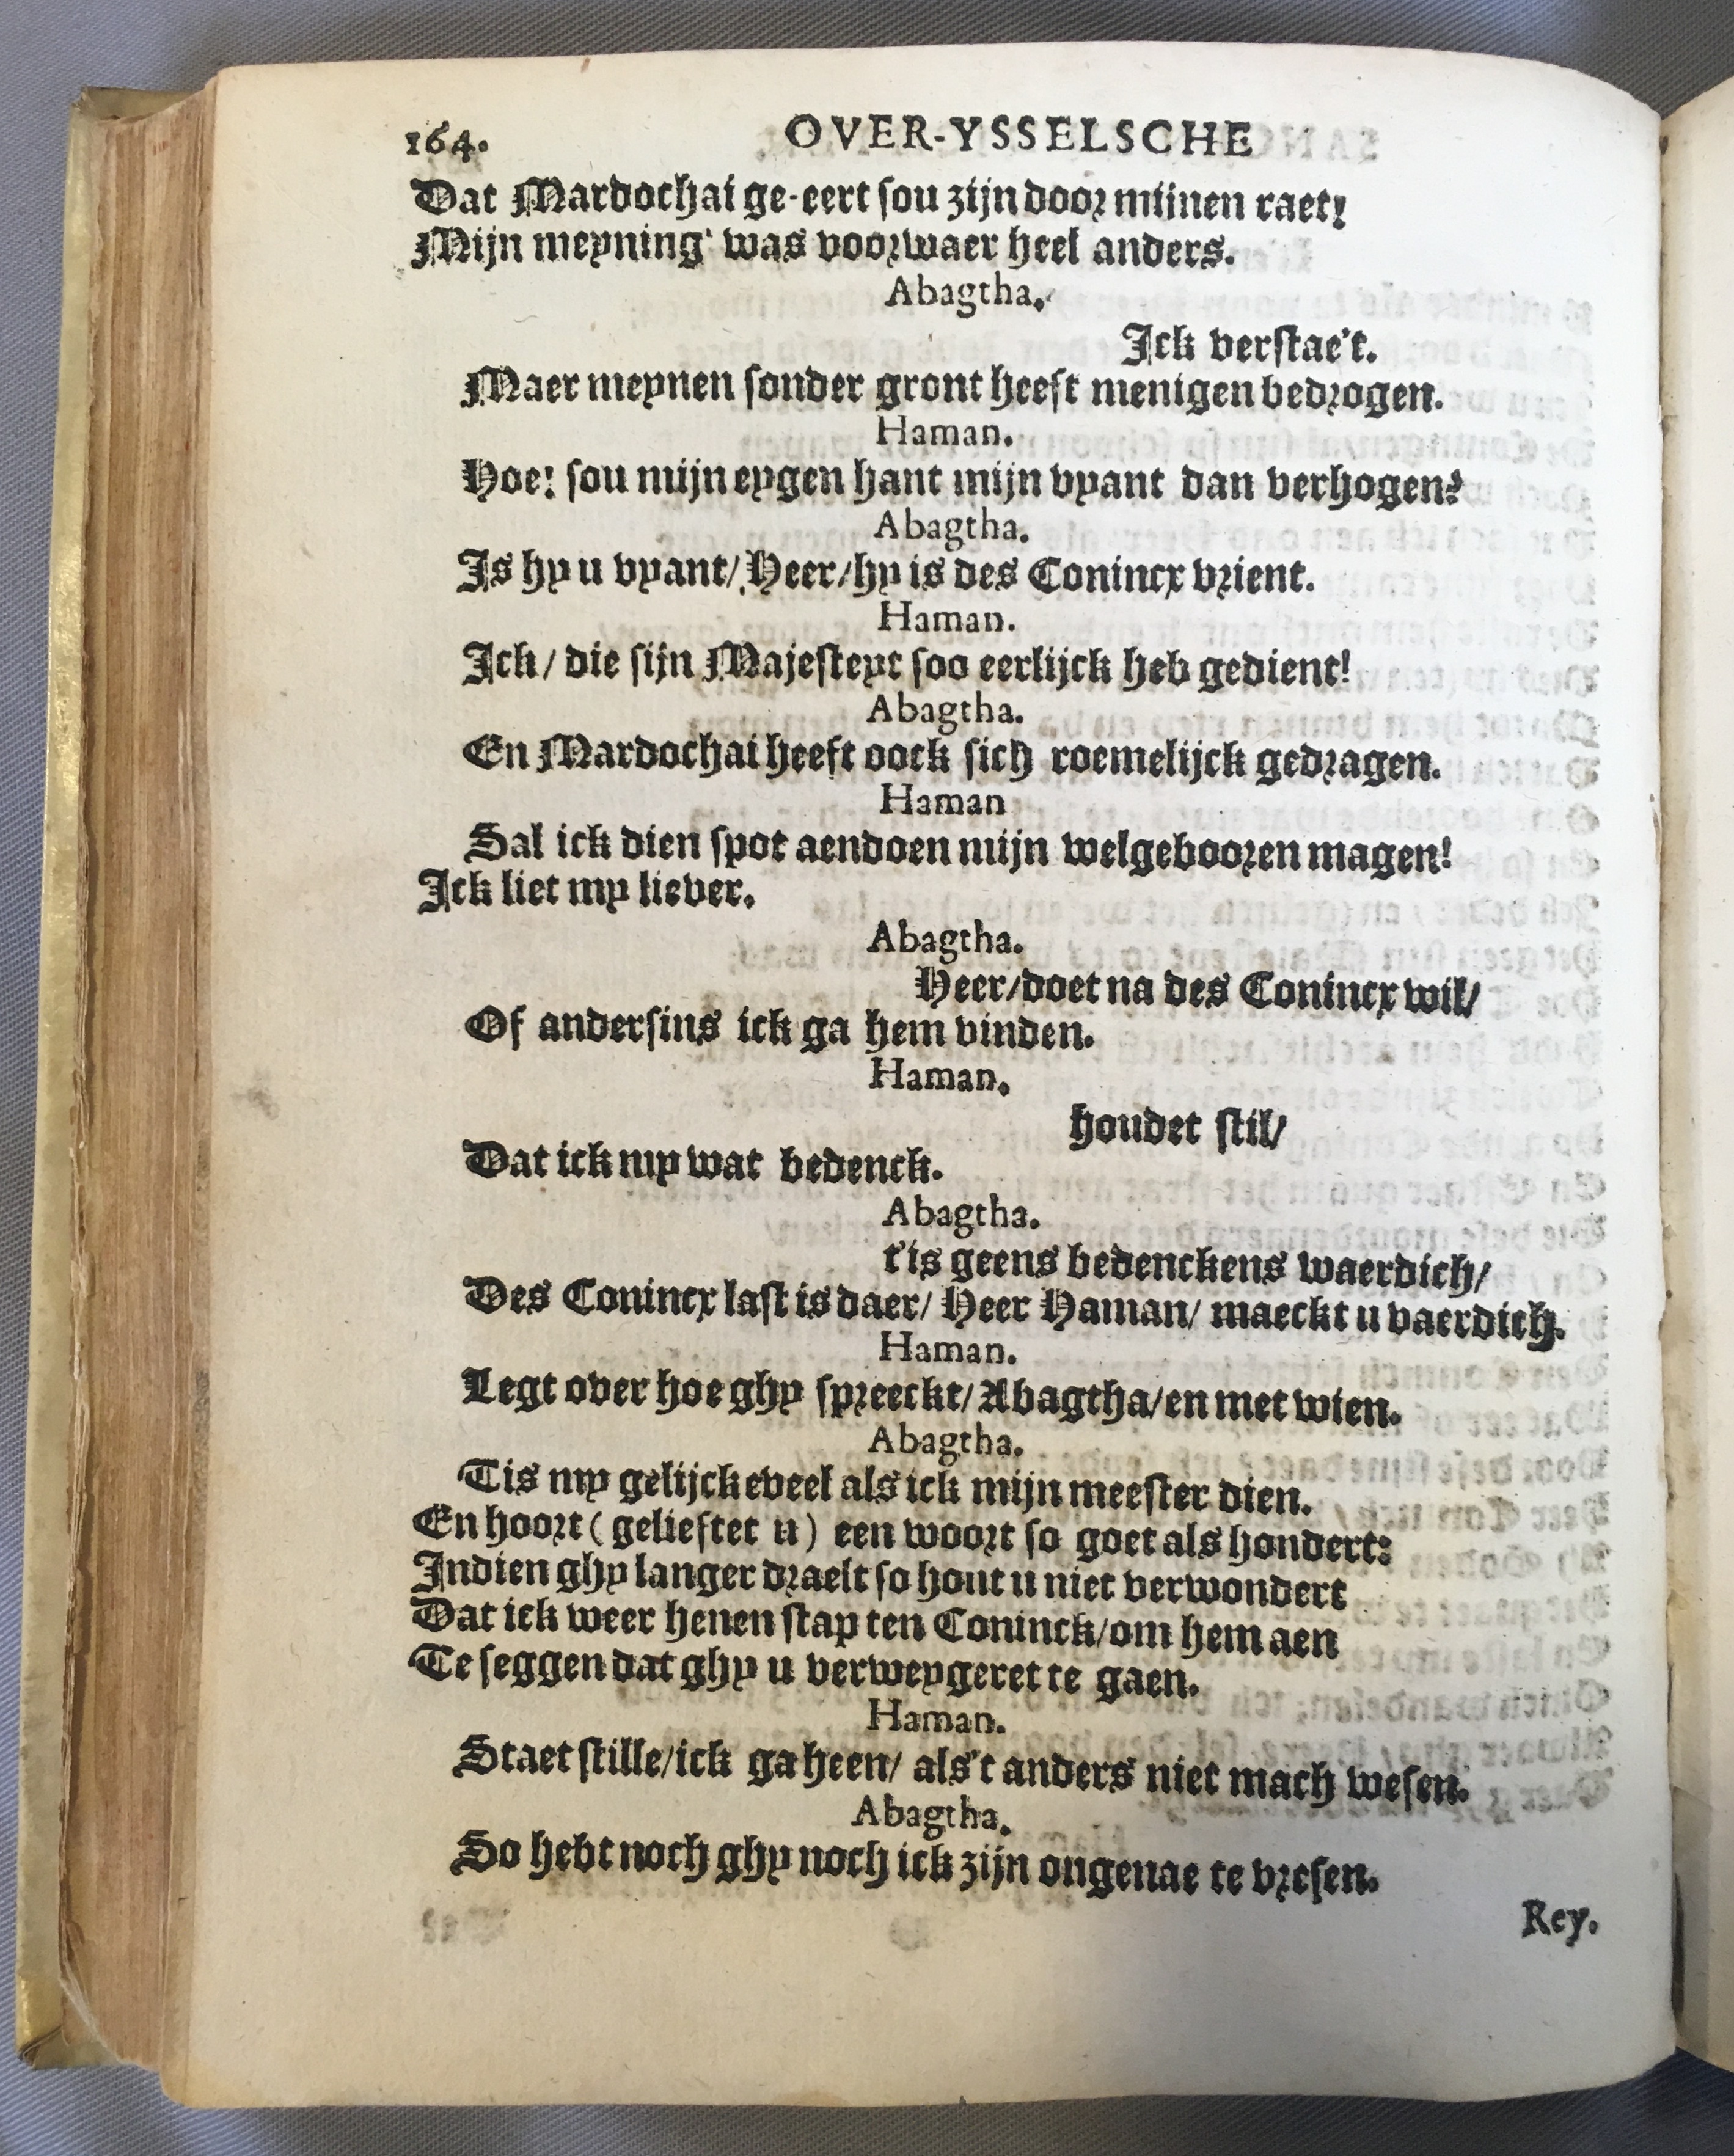 164. OVER-YSSELSCHE
Dat Mardochai ge-eert sou zijn door mijnen raet?
Mijn meyning' was voorwaer heel anders.
Abagtha.
Ick verstae't.
Maer meynen sonder gront heeft menigen bedrogen.
Haman.
Hoe! sou mijn eygen hant mijn vyant dan verhogen?
Abagtha.
Is hy u vyant/ Heer/ hy is des Conincx vrient.
Haman.
Ick/ die sijn Majesteyt soo eerlijck heb gedient!
Abagtha.
En Mardochai heeft oock sich roemelijck gedragen.
Haman
Sal ick dien spot aendoen mijn welgebooren magen!
Ick liet my liever.
Abagtha.
Heer/ doet na des Conincx wil/
Of andersins ick ga hem vinden.
Haman.
houdet stil/
Dat ick my wat bedenck.
Abagtha.
t'is geens bedenckens waerdich/
Des Conincx last is daer/ Heer Haman/ maeckt u vaerdich.
Haman.
Legt over hoe ghy spreeckt/ Abagtha/ en met wien.
Abagtha.
Tis my gelijck eveel als ick mijn meester dien.
En hoort ( gelieftet u ) een woort so goet als hondert:
Indien ghy langer draelt so hout u niet verwondert
Dat ick weer henen stap ten Coninck/ om hem aen
Te seggen dat ghy u verweygeret te gaen.
Haman.
Staet stille/ ick ga heen/ als't anders niet mach wesen.
Abagtha.
So hebt noch ghy noch ick zijn ongenae te vresen.
Rey.